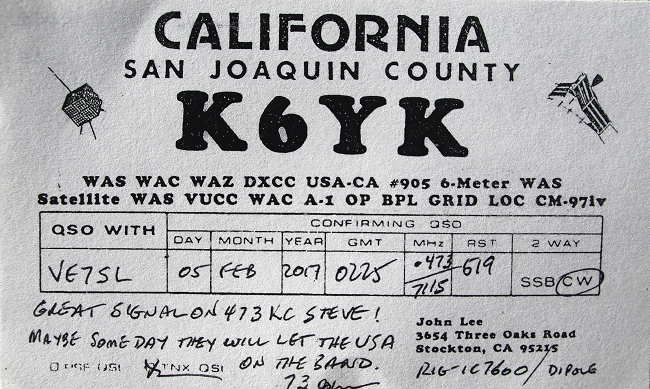 CALIFORNIA
SAN JOAQUIN COUNTY
K6YK
WAS WAC WAZ DXCC USA-CA #905 6-Meter WAS
Satellite WAS VUCC WAC A-1 OP BPL GRID LOC CM-97lv
QSO WITH CONFIRMING QSO
DAY MONTH YEAR GMT MHz RST 2 WAY
VE7SL 05 FEB 2017 0225 .473 / 7115 519 SSB CW
GREAT SIGNAL ON 473 KC STEVE!
MAYBE SOME DAY THEY WILL LET THE USA
ON THE BAND.
John Lee
3654 Three Oaks Road
Stockton, CA 95215
QSI TNX QSI
73
RIG-IC7600/DIPOLE